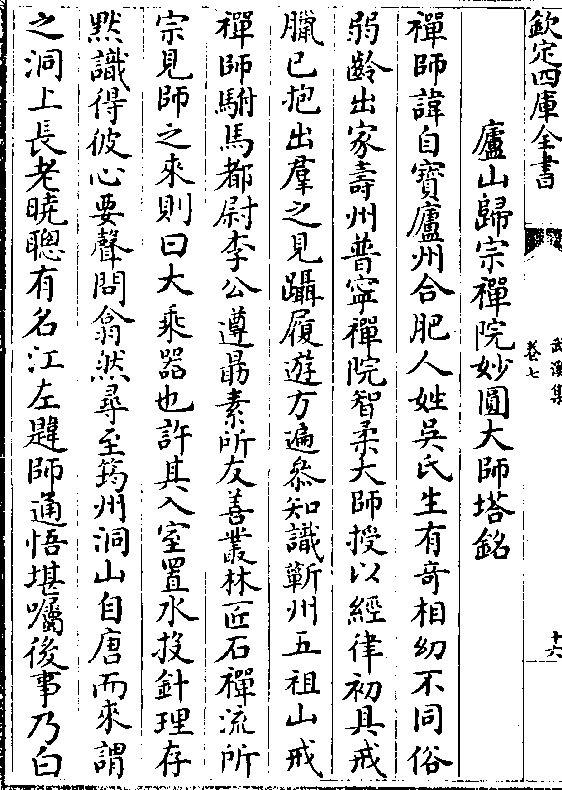 欽定四庫全書
武溪集
卷七
十六
廬山歸宗禪院妙圓大師塔銘
禪師諱自寶廬州合肥人姓吳氏生有奇相幼不同俗
弱齡出家壽州普寧禪院智柔大師授以經律初具戒
臘已抱出羣之見躡屨遊方遍叅知識蘄州五祖山戒
禪師駙馬都尉李公遵勗素所友善叢林匠石禪流所
宗見師之來則曰大乘器也許其入室置水投針理存
黙識得彼心要聲問翕然尋至筠州洞山自唐而來謂
之洞上長老曉聰有名江左韙師通悟堪囑後事乃白